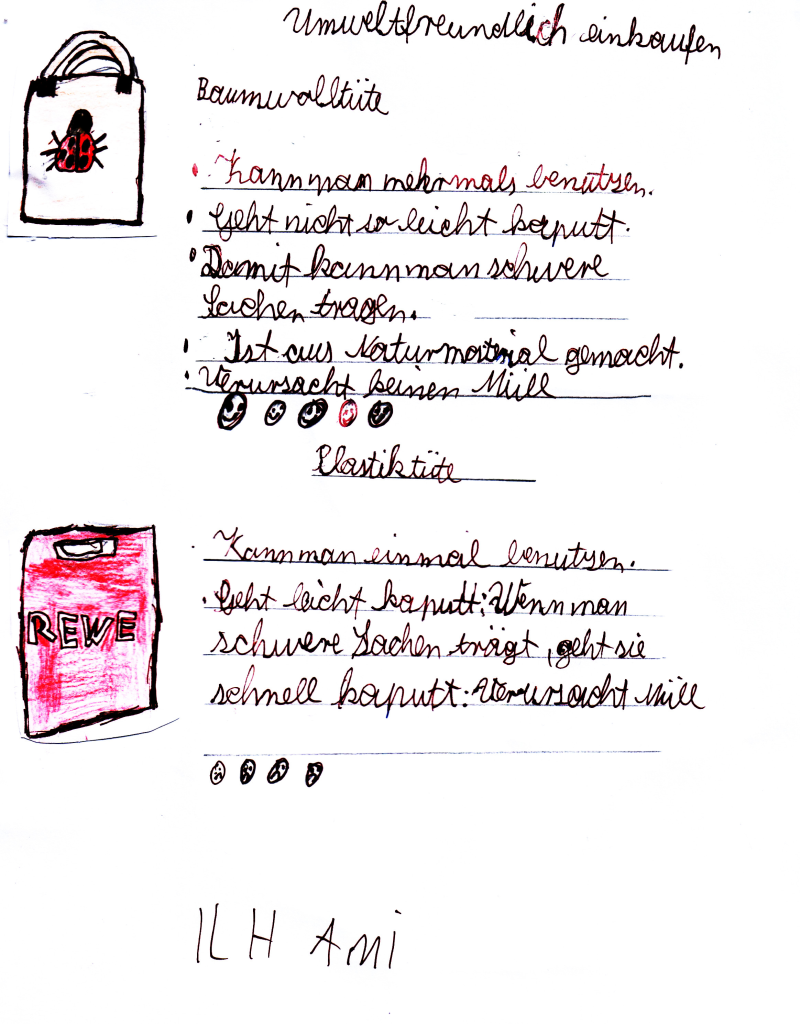 Umweltfreundlich einkaufen
Baumwolltüte
• Kann man mehrmals benutzen.
• Geht nicht so leicht kaputt.
• Damit kann man schwere
Sachen tragen.
• Ist aus Naturmaterial gemacht.
• Verursacht keinen Müll
Plastiktüte
• Kann man einmal benutzen.
REWE
• Geht leicht kaputt: Wenn man
schwere Sachen trägt, geht sie
schnell kaputt: Verursacht Müll